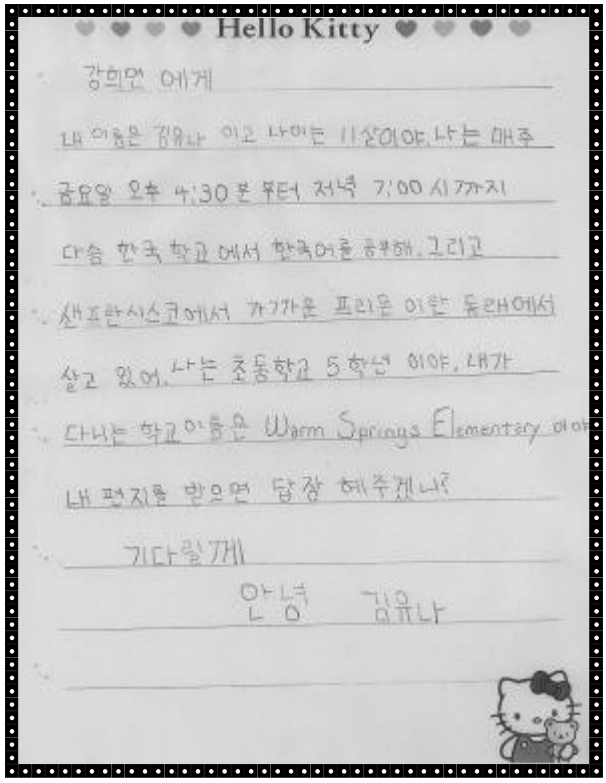 Hello Kitty
강희연 에게
내 이름은 김유나 이고 나이는 11살이야. 나는 매주
금요일 오후 4:30분 부터 저녁 7:00시까지
다솜 한국 학교에서 한국어를 공부해. 그리고
샌프란시스코에서 가까운 프리몬 이란 동래에서
살고 있어. 나는 초등학교 5학년 이야. 내가
다니는 학교이름은 Warm Springs Elementary 이야
내 편지를 받으면 답장 해주겠니?
기다릴께
안녕 김유나